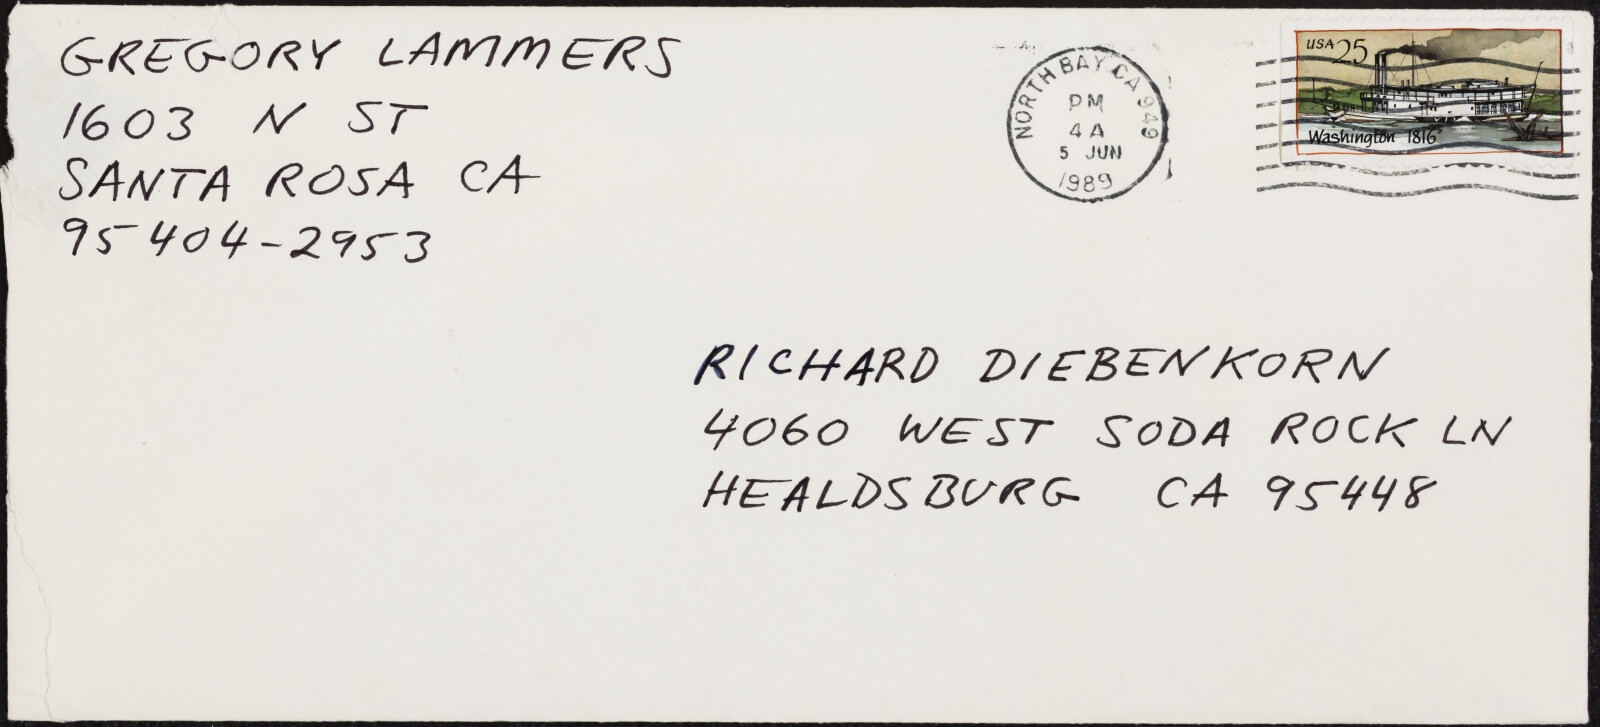 GREGORY LAMMERS
1603 N ST
SANTA ROSA CA
95404-2953
NORTH BAY CA 949
PM
4A
5 JUN
1989
USA 25
Washington 1816
RICHARD DIEBENKORN
4060 WEST SODA ROCK LN
HEALDSBURG CA 95448